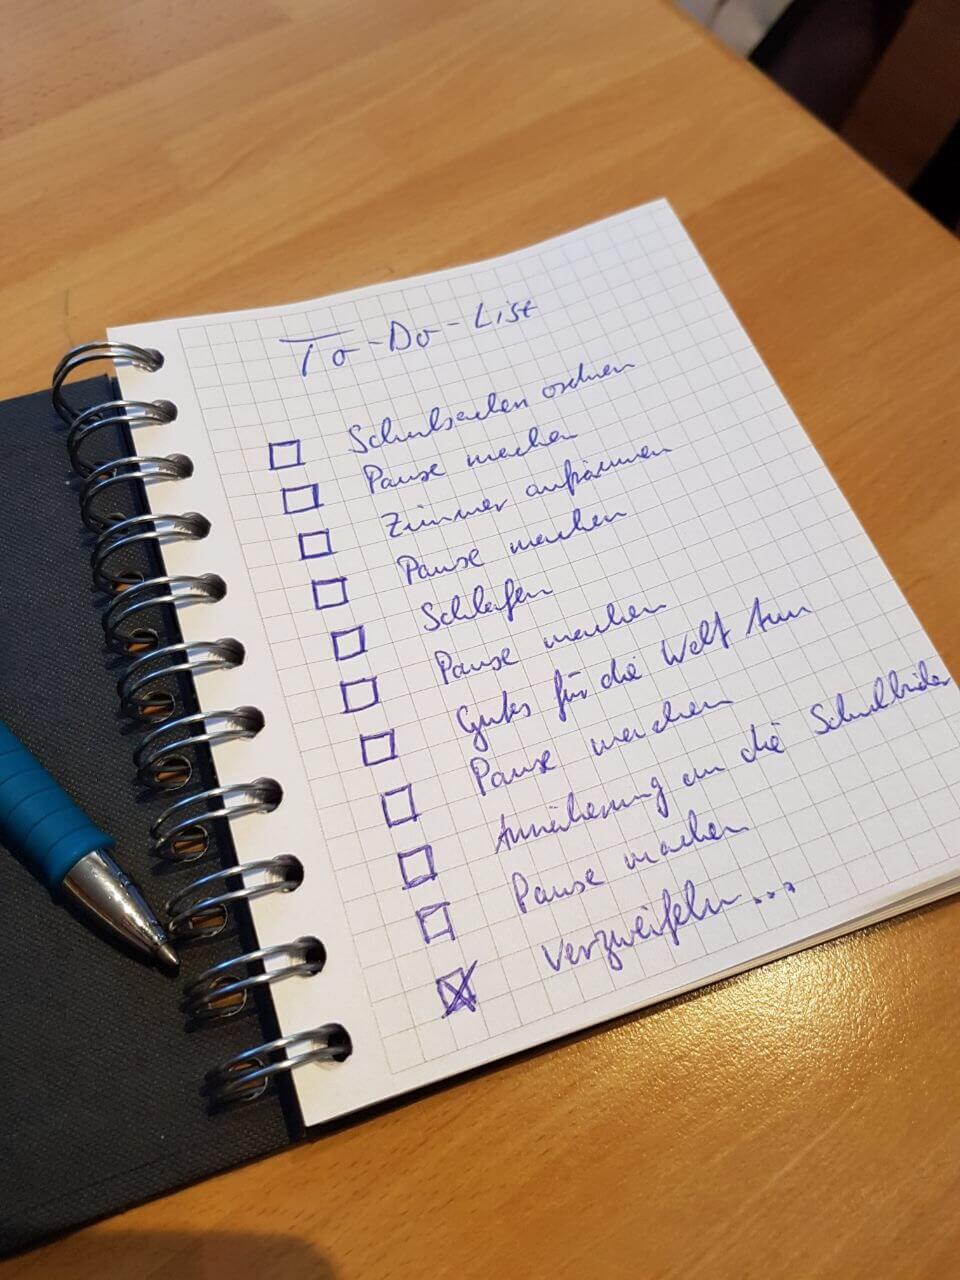 To-Do-List
Schulsachen ordnen
Pause machen
Zimmer aufräumen
Pause machen
Schlafen
Pause machen
Gutes für die Welt tun
Pause machen
Annäherung an die Schulbilder
Pause machen
verzweifeln...